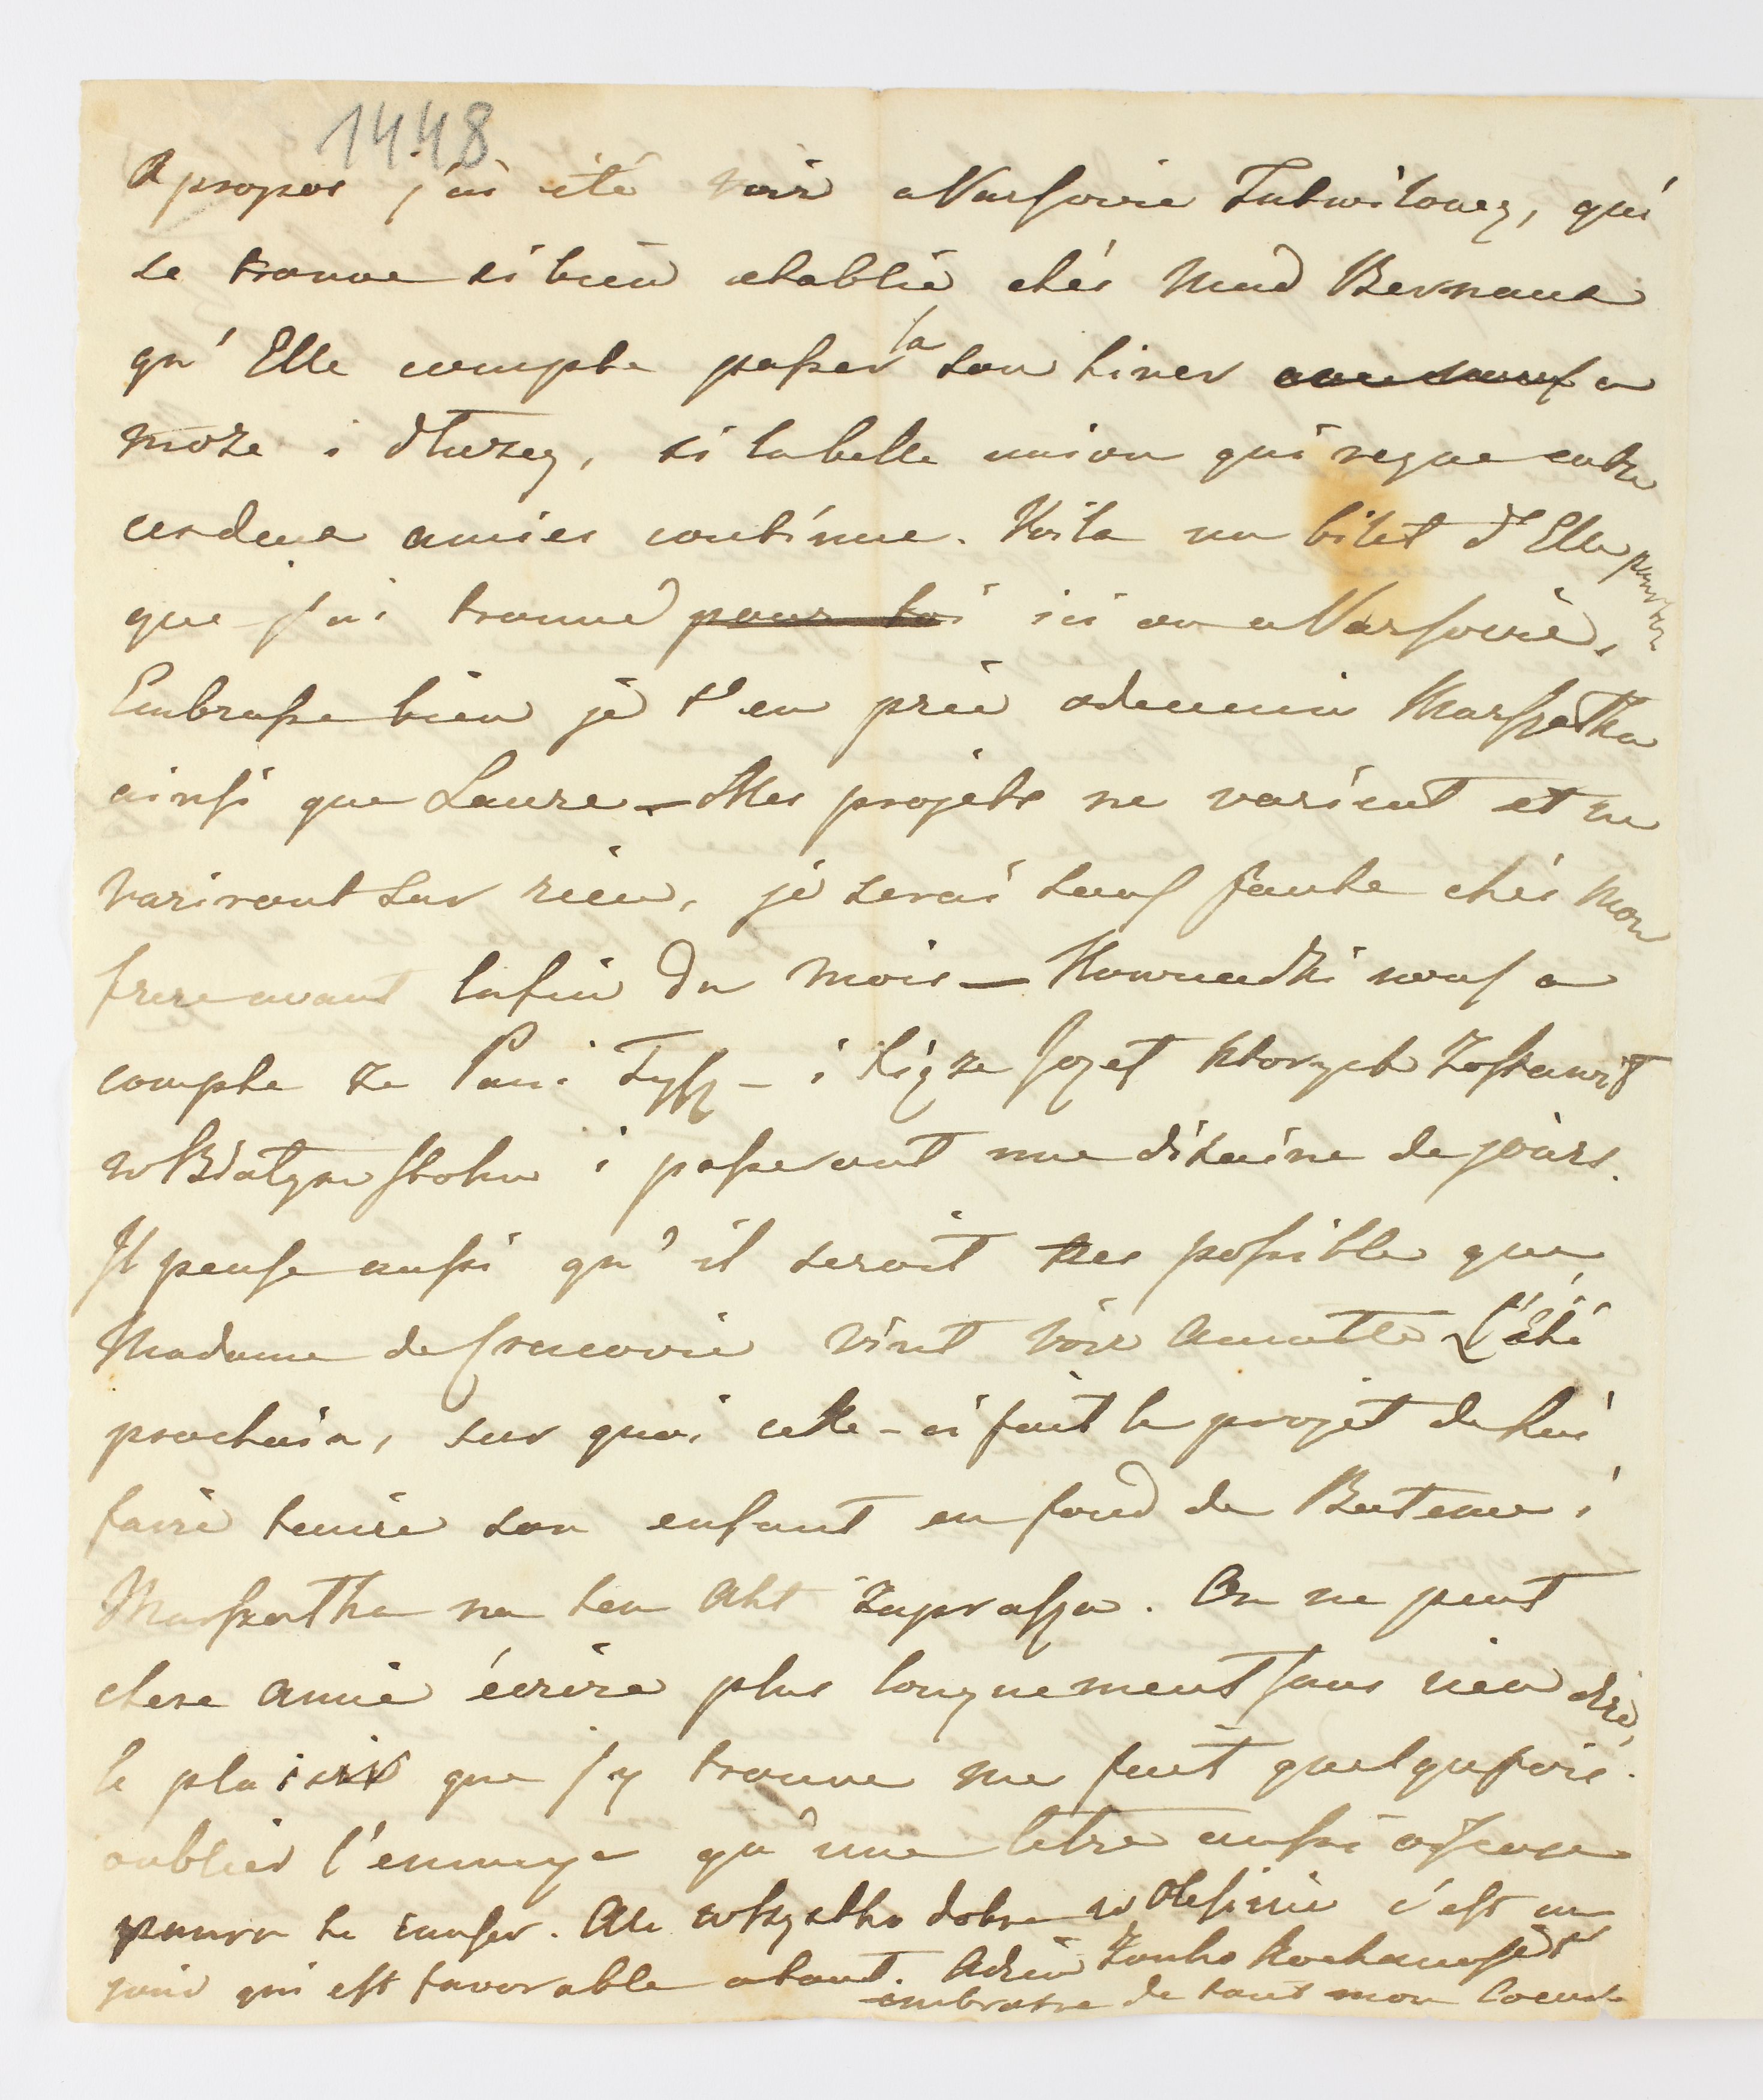 1448
Apropos j'ai été voir a Varsovie Tutwilowez, qui
se trouve si bien etablie chés Mad Bernaux
qu'Elle compte passer la son hiver a
może i dłużey, si la belle union qui regne entre
ces deux amies continue. Voila un bilet d'Elle pour toi
que j'ai trouvé pour toi ici ou a Varsovie,
Embrasse bien je t'en prie odemnie Marszałka
ainsi que Laure — Mes projets ne varient et ne
variront sur rien, je serai sauf faute chés mon
frere avant la fin du mois — nous a
compte ze Pani Tysz — i Xiąże Jozef ktorych zostawił
w Białym stoku i passeront une disaine de jours.
Il pense aussi qu'il seroit tres possible que
Madame de vint voir Anette L'été
prochain, sur quoi celle-ci fait le projet de lui
faire tenire son enfant en fond de Bateme i
Marszałka na ten Akt zaprasza. On ne peut
chere amie écrire plus longuement sans rien dire,
le plaisir que j'y trouve me fait quelquefois
oublier l'ennuye qu'une letre aussi
poura te causer. Ale wszystko dobre w Olesinie c'est un
jour qui est favorable a tout. Adieu Zonko Kochana je t'
embrasse de tout mon Coeur